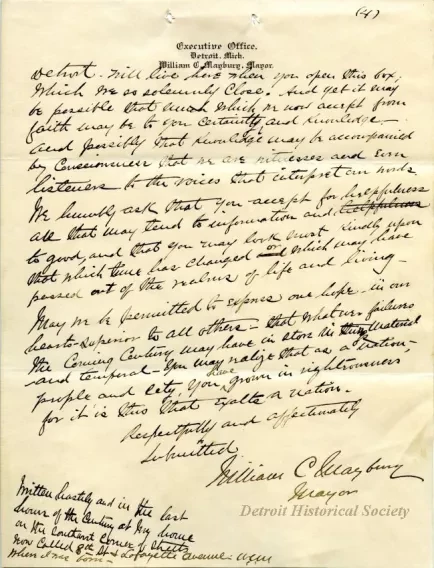 (4)
Executive Office.
Detroit, Mich.
William C. Maybury, Mayor.
Detroit. Will live here when you open this box,
which we so solemnly close. And yet it may
be possible that much which we now accept from
faith may be to you certainty and knowledge.
and possibly that knowledge may be accompanied
by consciousness that we are witnesses and even
listeners to the voices that interpret our words
We humbly ask that you accept for helpfulness
all that may tend to information and helpfulness
to good, and that you may look most kindly upon
that which time has changed or which may have
passed out of the realms of life and living.
May we be permitted to express one hope in our
hearts superior to all others— that whatever failures
the Coming Century may have in store in things material
and temporal— you may realize that as a nation—
people and city, you have grown in righteousness,
for it is this that exalts a nation.
Respectfully and affectionately
Submitted.
William C Maybury
Mayor
Written hastily and in the last
hours of the Century at my home
on the Southeast Corner of Streets
now Called 8th St & Lafayette Avenue:
where I was born—
Detroit Historical Society